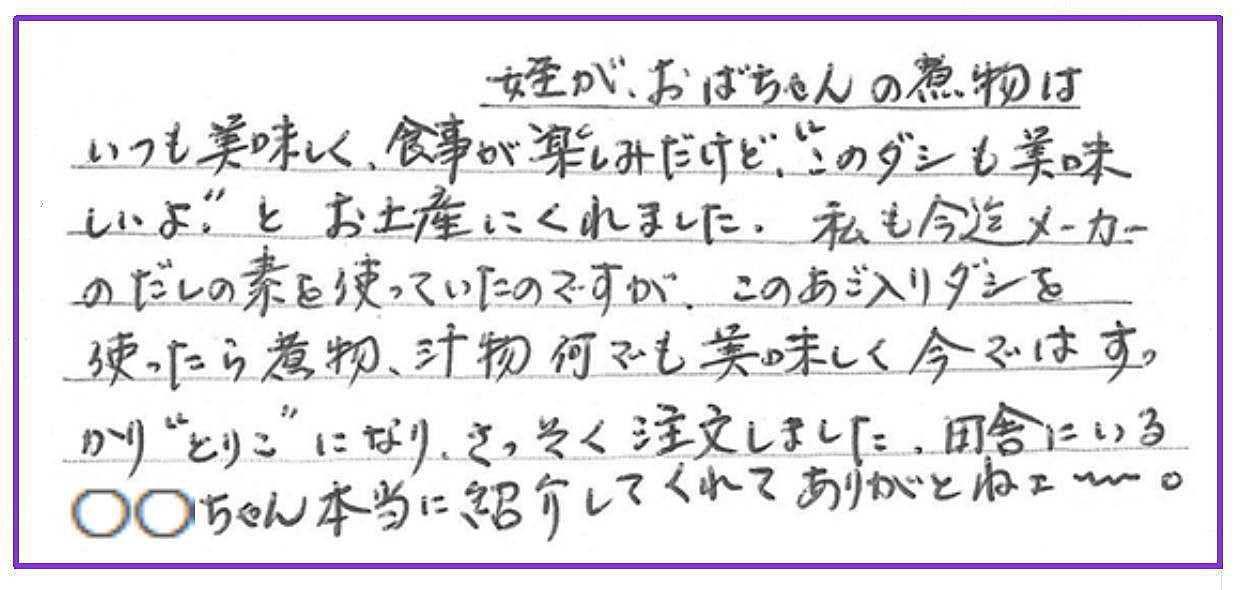 姪が、おばちゃんの煮物は
いつも美味しく、食事が楽しみだけど、“このダシも美味
しいよ。”と お土産にくれました。 私も今迄メーカー
のだしの素を使っていたのですが、このあご入りダシを
使ったら煮物、汁物何でも美味しく今ではすっ
かり“とりこ”になり、さっそく注文しました。田舎にいる
○○ちゃん本当に紹介してくれてありがとねェ〜〜。